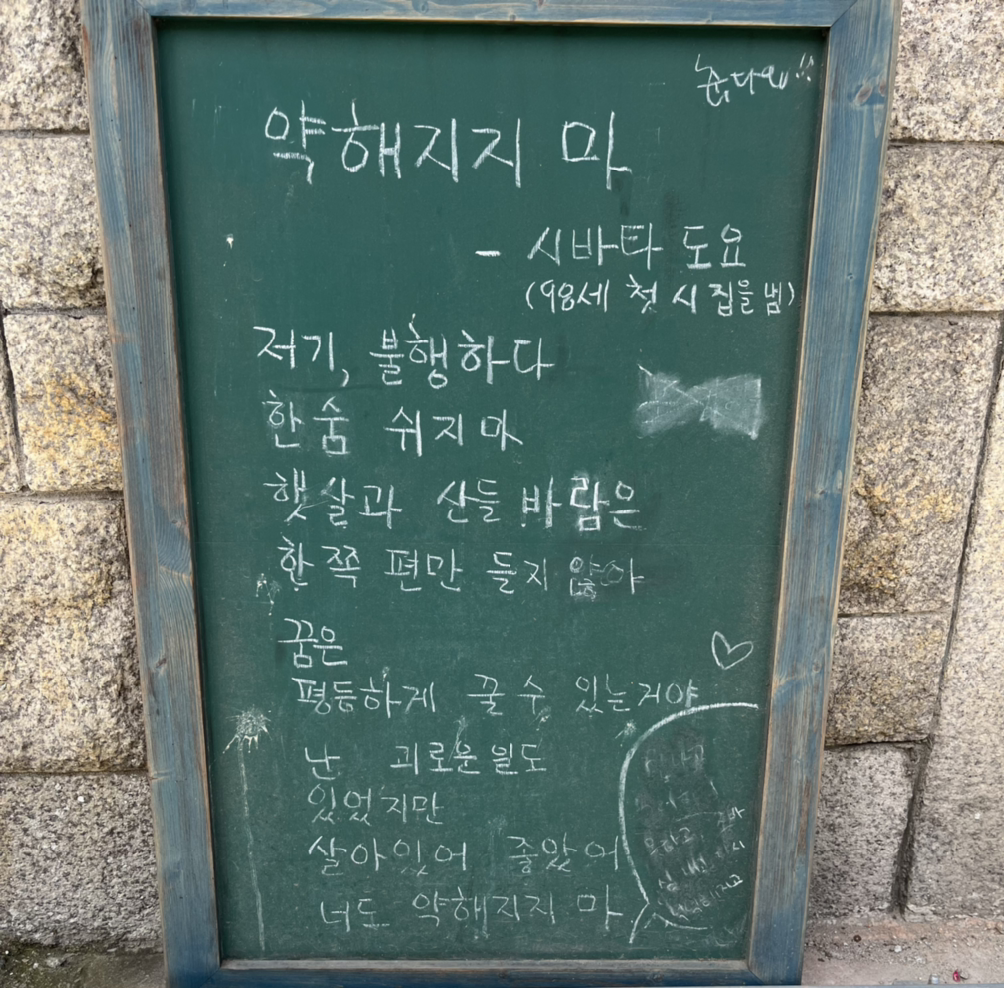 약해지지 마
- 시바타 도요
(98세 첫 시집을 냄)
저기, 불행하다
한숨 쉬지 마
햇살과 산들 바람은
한쪽 편만 들지 않아
꿈은
평등하게 꿀 수 있는거야
난 괴로운 일도
있었지만
살아있어 좋았어
너도 약해지지 마